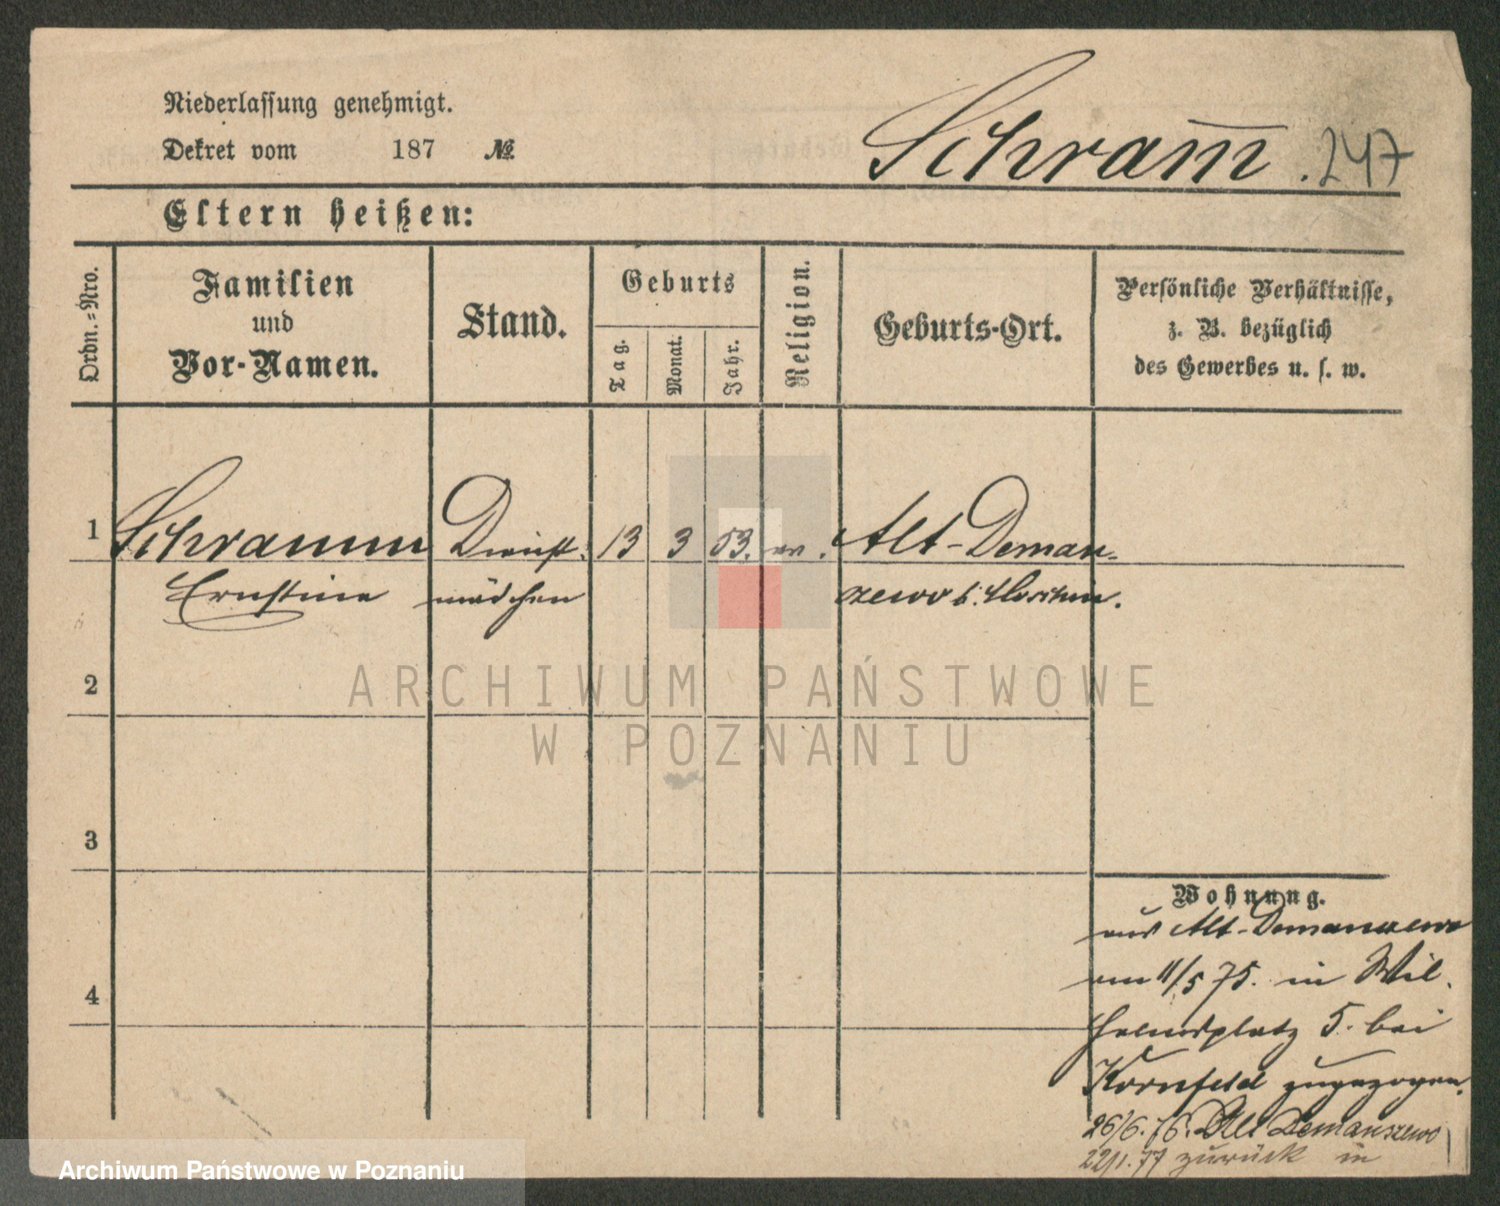 Niederlassung genehmigt.
Dekret vom 187 №
Schram̄ . 247
Eltern heißen:
Ordn.=Nro.
Familien
und
Vor-Namen.
Stand.
Geburts
Tag.
Monat.
Jahr.
Religion.
Geburts-Ort.
Persönliche Verhältnisse,
z. B. bezüglich
des Gewerbes u. s. w.
1 Schramm Dienst- 13 3 53. ev. Alt-Deman-
Ernstine mädchen zewo b.
2
3
4
ARCHIWUM PAŃSTWOWE
W POZNANIU
Wohnung.
aus Alt-Demanzewo
am 11/5 75. in Wil-
helmsplatz 5. bei
Kornfeld zugezogen.
26/6. 76. Alt Demanszewo
22/1. 77 zurück in
Archiwum Państwowe w Poznaniu